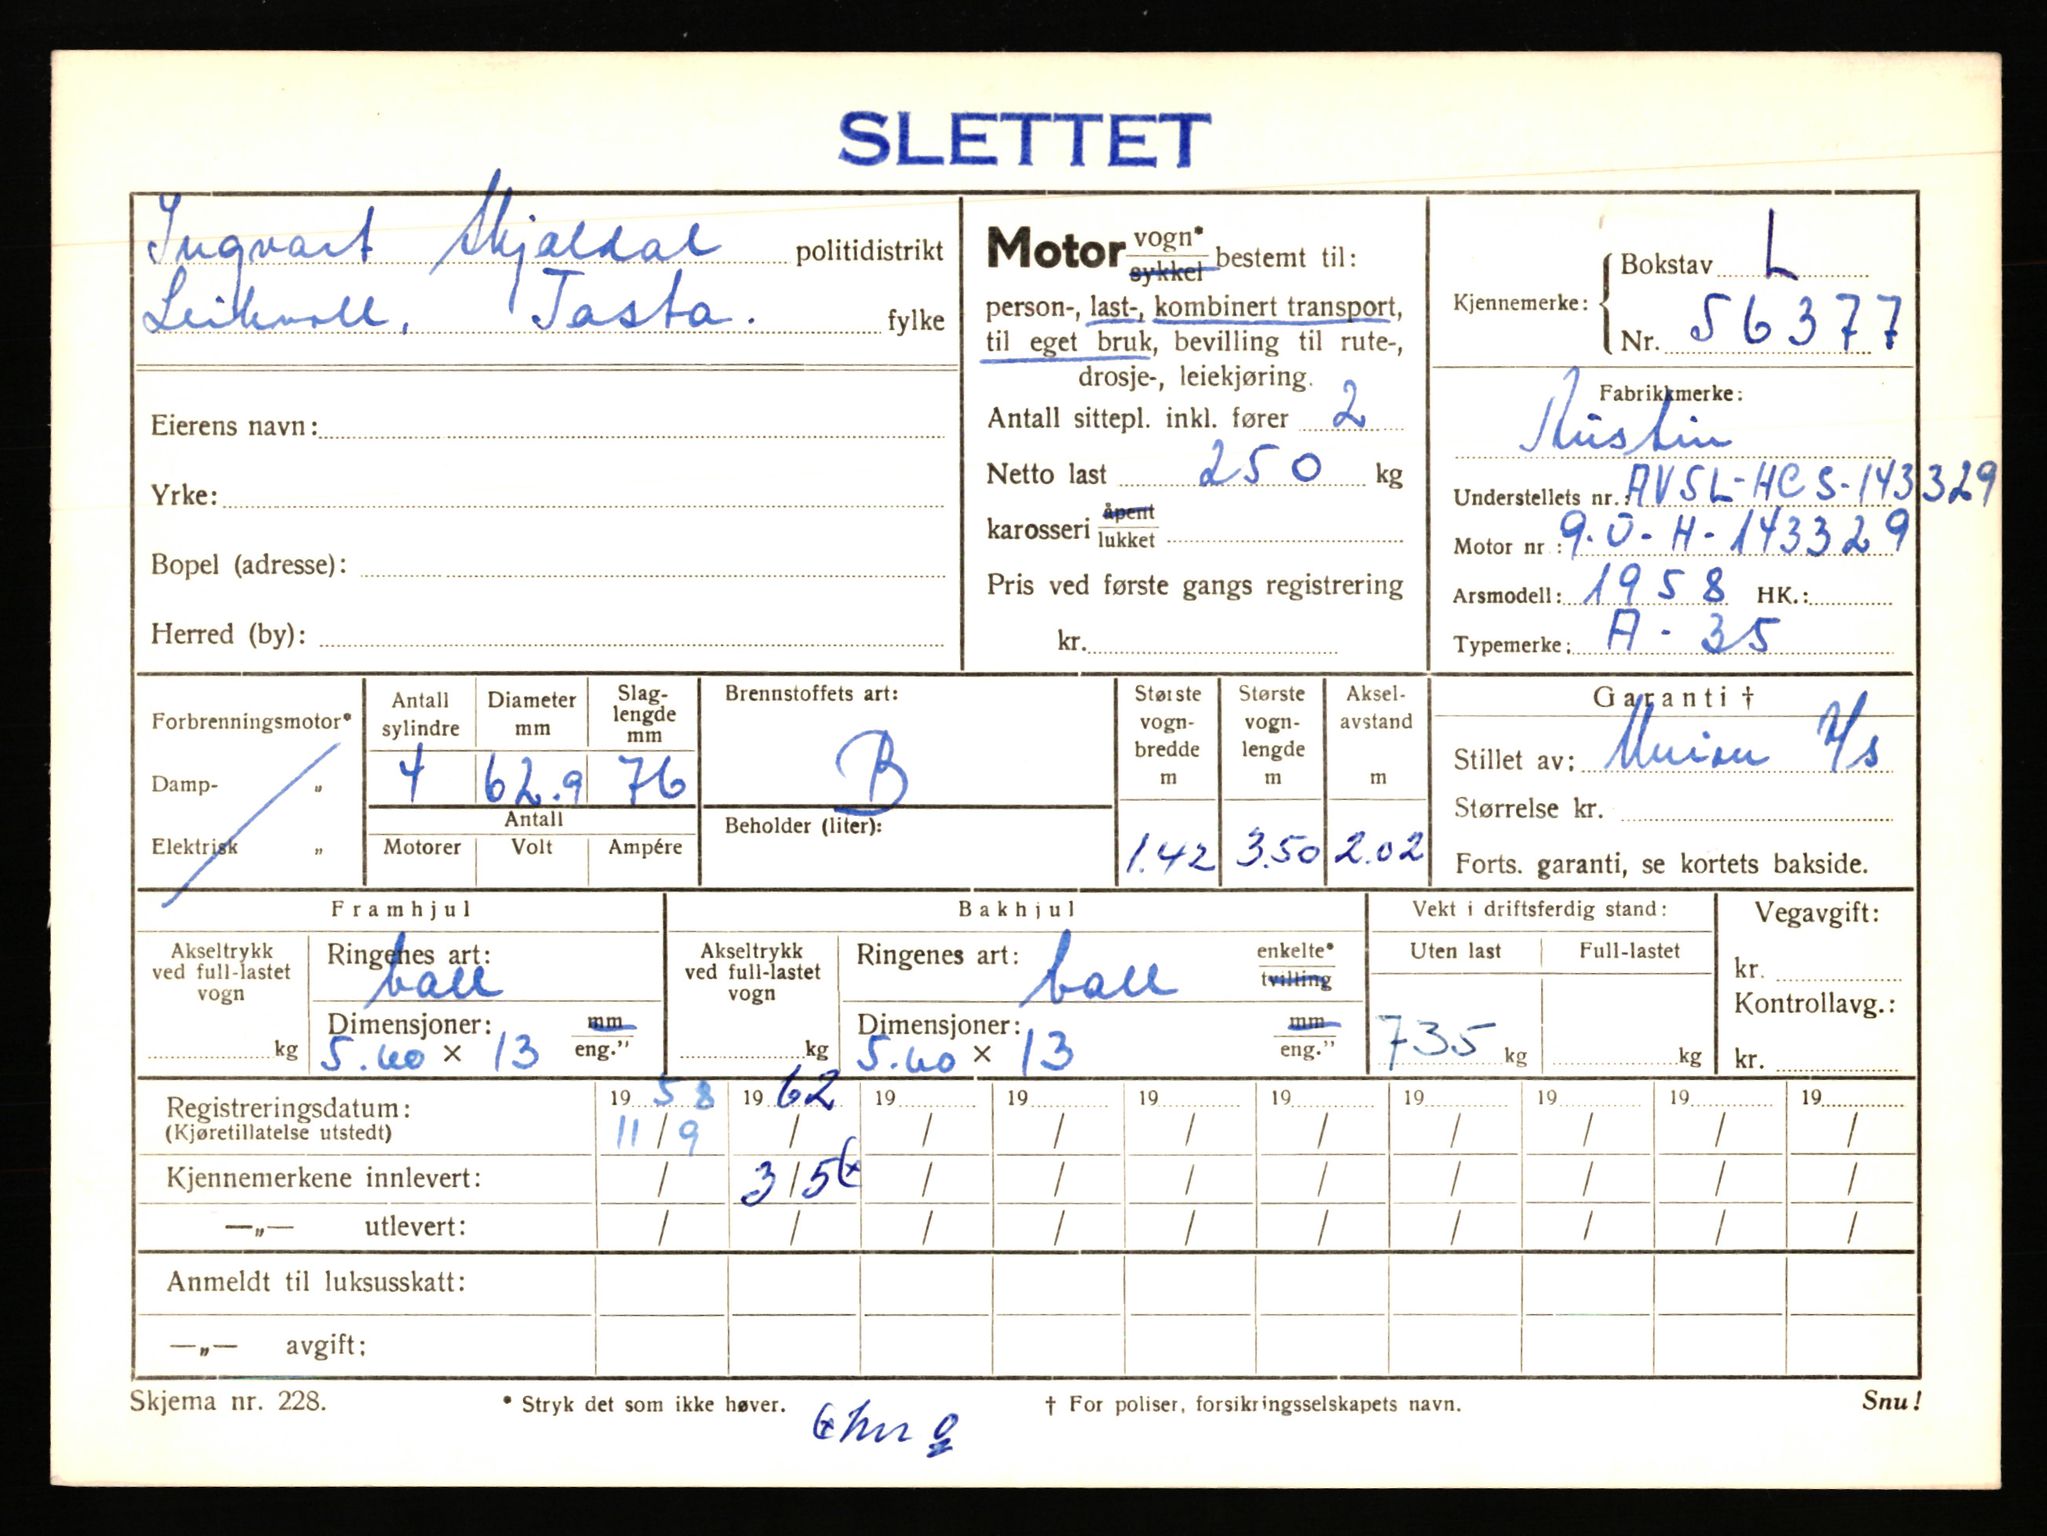 SLETTET
Ingvart Skjældal politidistrikt
Leikvoll, Tasta. fylke
Eierens navn:
Yrke:
Bopel (adresse):
Herred (by):
Motor vogn* sykkel bestemt til:
person-, last-, kombinert transport,
til eget bruk, bevilling til rute-,
drosje-, leiekjøring.
Antall sittepl. inkl. fører 2
Netto last 250 kg
karosseri åpent lukket
Pris ved første gangs registrering
kr.
Kjennemerke: Bokstav L
Nr. 56377
Fabrikkmerke:
Austin
Understellets nr.: AVSL-HCS-143329
Motor nr.: 9.U-H-143329
Arsmodell: 1958 HK.:
Typemerke: A-35
Forbrenningsmotor*
Damp- „
Elektrisk „
Antall sylindre
Diameter mm
Slag-lengde mm
4 62.9 76
Antall
Motorer Volt Ampére
Brennstoffets art:
B
Beholder (liter):
Største vogn-bredde m
1.42
Største vogn-lengde m
3.50
Aksel-avstand m
2.02
Garanti †
Stillet av: Union A/S
Størrelse kr.
Forts. garanti, se kortets bakside.
Framhjul
Akseltrykk ved full-lastet vogn
kg
Ringenes art:
ball
Dimensjoner: mm
5.60 × 13 eng."
Bakhjul
Akseltrykk ved full-lastet vogn
kg
Ringenes art: enkelte*
ball tvilling
Dimensjoner: mm
5.60 × 13 eng."
Vekt i driftsferdig stand:
Uten last Full-lastet
735 kg kg
Vegavgift:
kr.
Kontrollavg.:
kr.
Registreringsdatum: 19 58 19 62 19 19 19 19 19 19 19 19
(Kjøretillatelse utstedt) 11/9 / / / / / / / / /
Kjennemerkene innlevert: / 3/5 / / / / / / / /
—„— utlevert: / / / / / / / / / /
Anmeldt til luksusskatt:
—„— avgift:
Skjema nr. 228. * Stryk det som ikke høver. † For poliser, forsikringsselskapets navn. Snu!